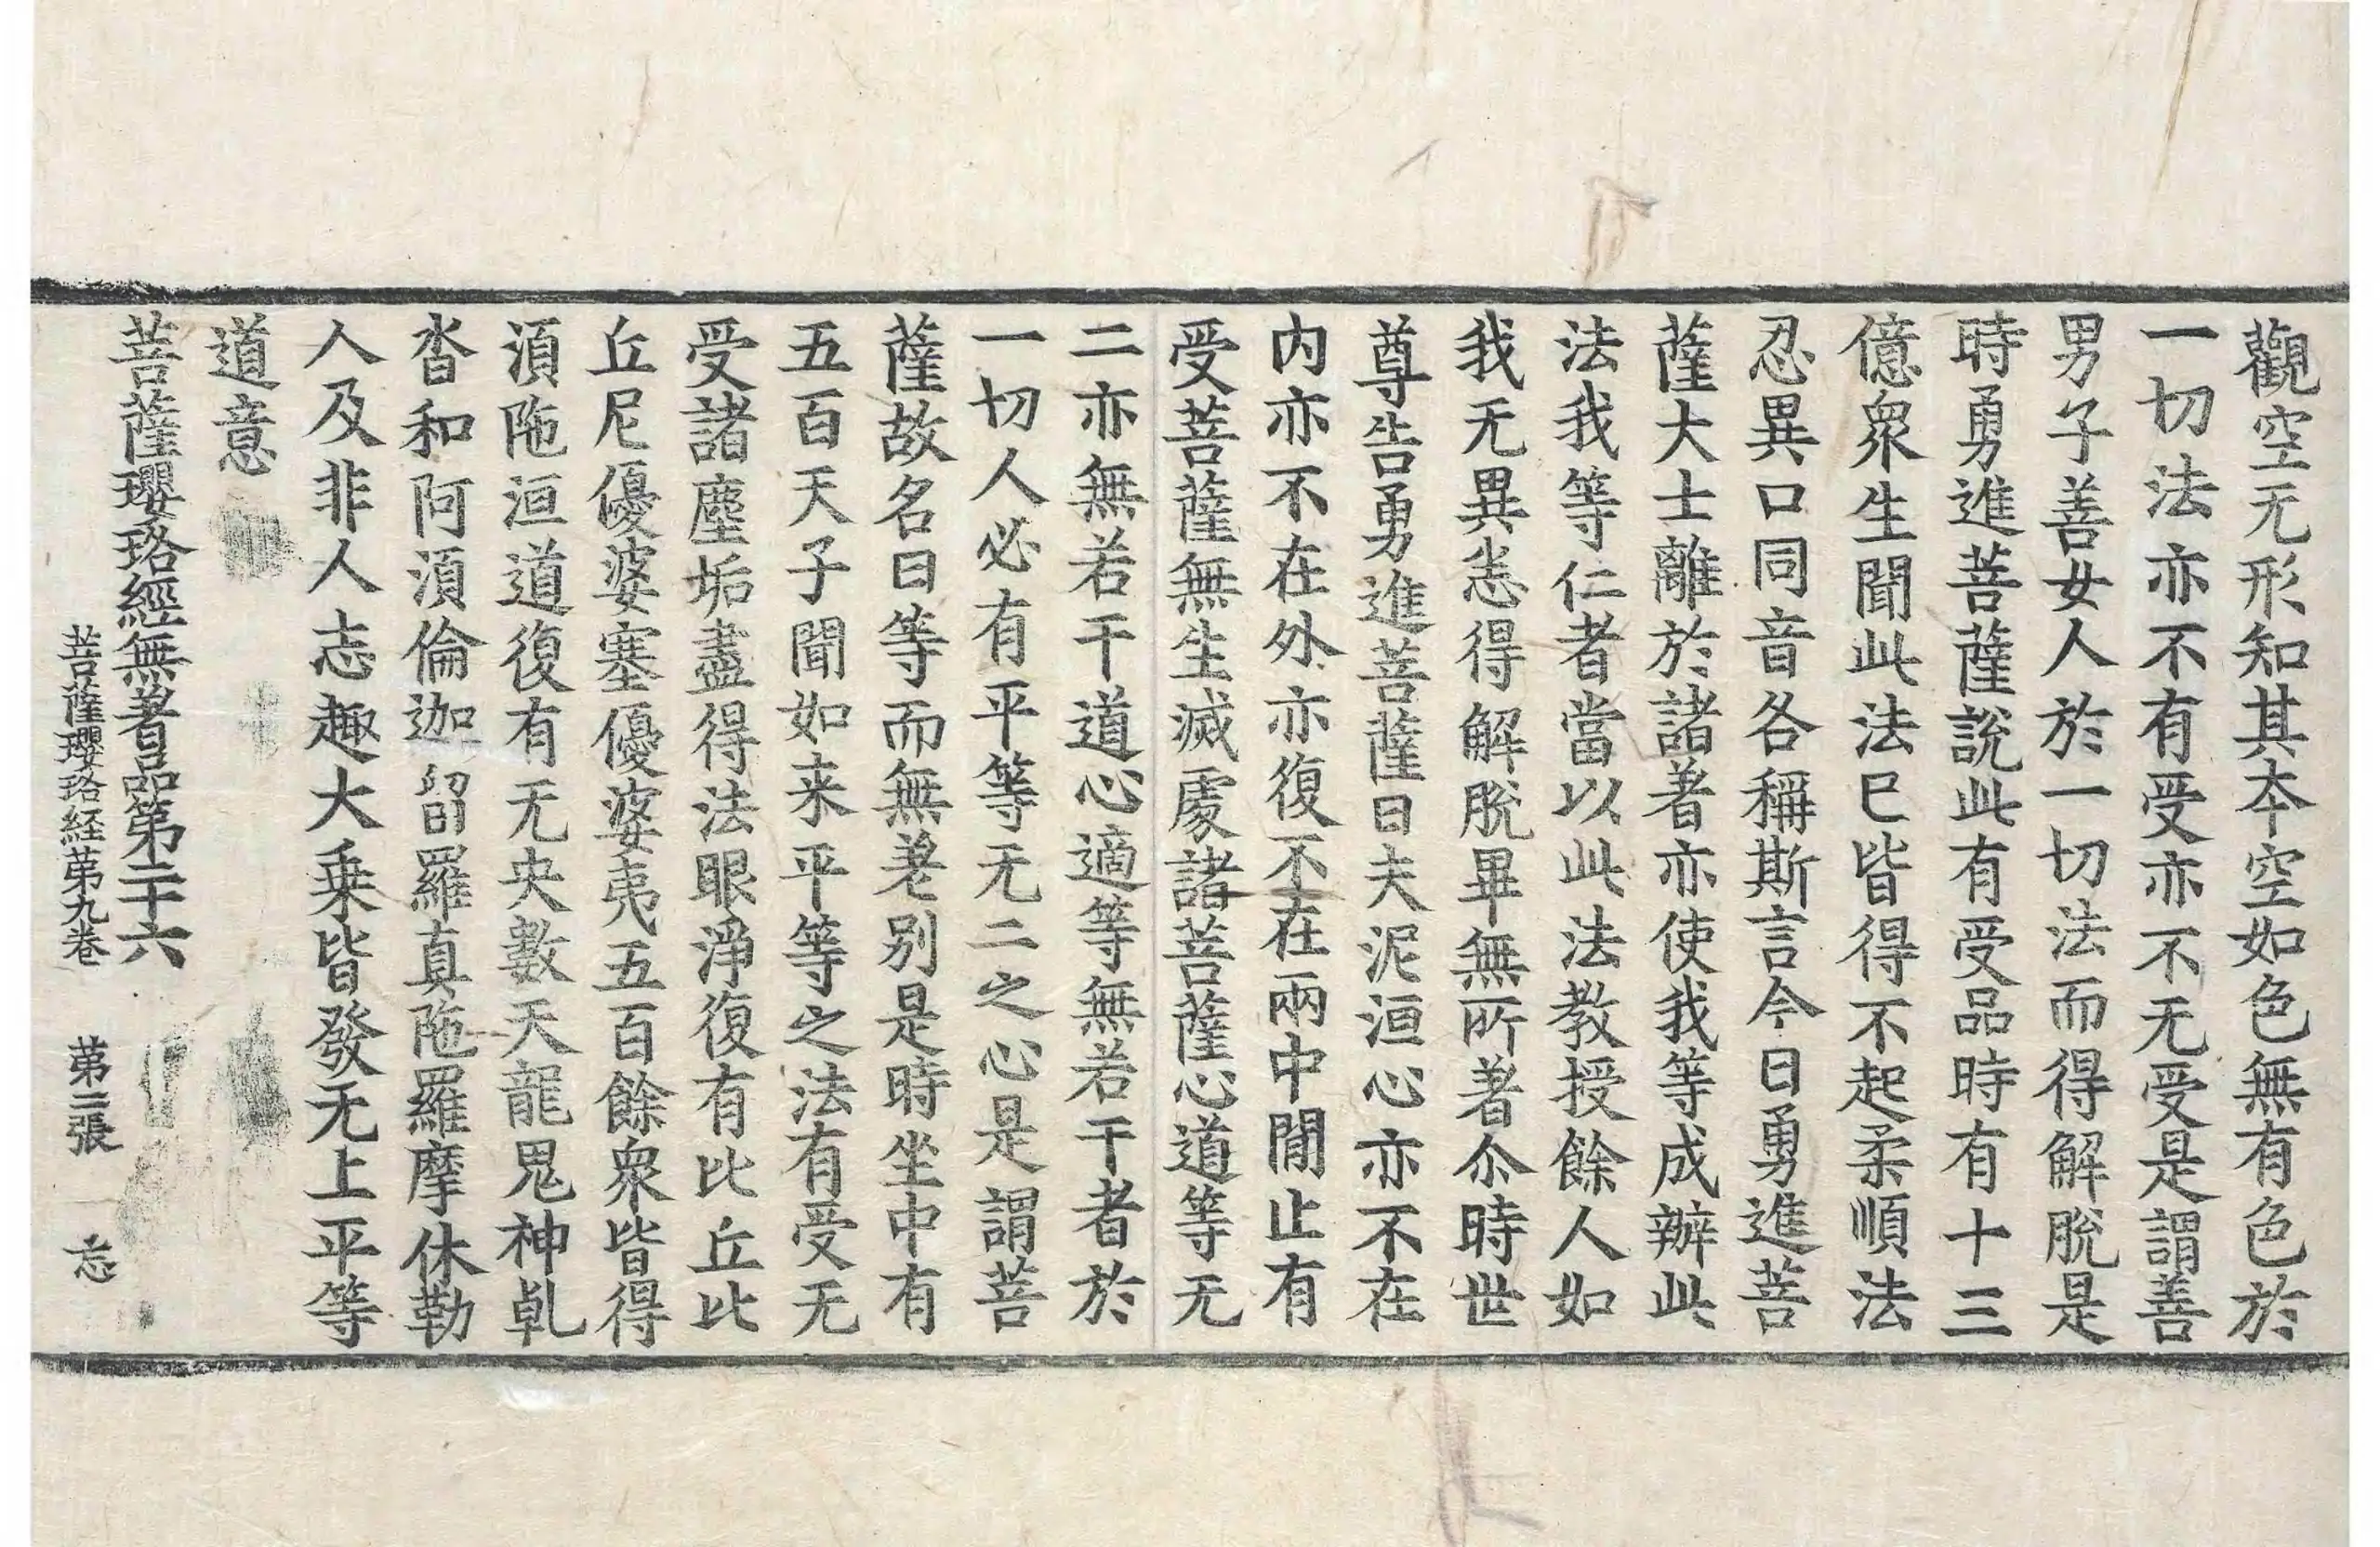 觀空无形知其夲空如色無有色於
一切法亦不有受亦不无受是謂善
男子善女人於一切法而得解脫是
時勇進菩薩說此有受品時有十三
億衆生聞此法已皆得不起柔順法
忍異口同音各稱斯言今日勇進菩
薩大士離於諸著亦使我等成辦此
法我等仁者當以此法教授餘人如
我无異悉得解脫畢無所著尒時世
尊告勇進菩薩曰夫泥洹心亦不在
内亦不在外亦復不在兩中閒止有
受菩薩無生滅處諸菩薩心道等无
二亦無若干道心適等無若干者於
一切人必有平等无二之心是謂菩
薩故名曰等而無差别是時坐中有
五百天子聞如来平等之法有受无
受諸塵垢盡得法眼淨復有比丘比
丘尼優婆塞優婆夷五百餘衆皆得
湏陁洹道復有无央數天龍鬼神乹
沓和阿湏倫迦留羅真陁羅摩休勒
人及非人志趣大乗皆發无上平等
道意
菩薩瓔珞經無著品第二十六
菩薩瓔珞経苐九卷 苐二張 忘